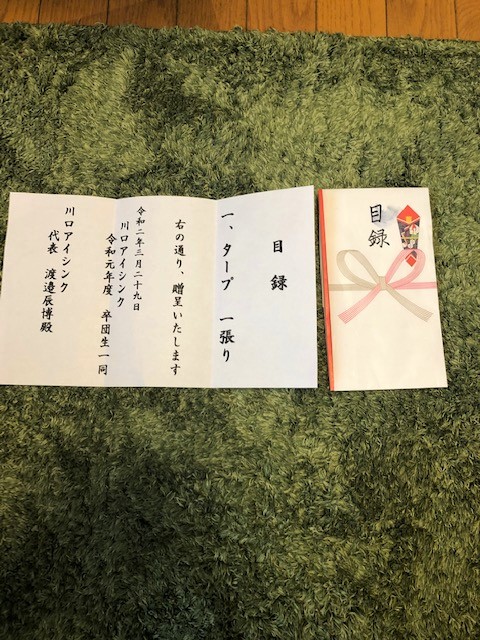 目録
目録
一、タープ 一張り
右の通り、贈呈いたします
令和二年三月二十九日
川口アイシンク
令和元年度 卒団生一同
川口アイシンク
代表 渡邉辰博殿